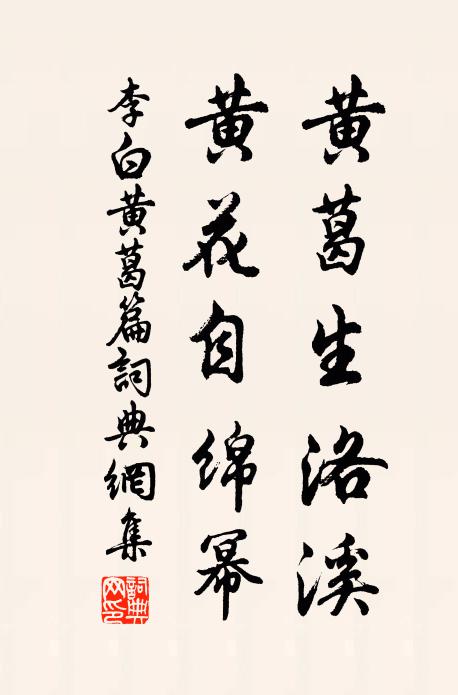 黄葛生洛溪
黄花自绵幂
李白黄葛篇詞典網集
詞典網印